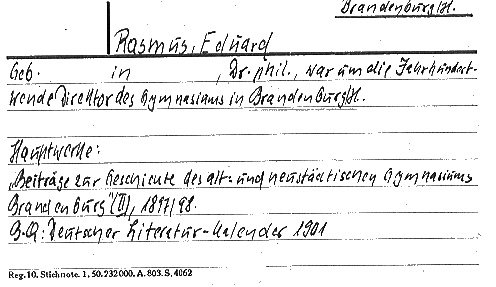 Brandenburg/H.
Rasmus, Eduard
Geb. in , Dr. phil., war um die Jahrhundert-
wende Direktor des Gymnasiums in Brandenburg/H.
Hauptwerke:
„Beiträge zur Geschichte des alt- und neustädtischen Gymnasiums
Brandenburg" (II), 1897/98.
B.-Q.: Deutscher Literatur-Kalender 1901
Reg. 10. Stichnote. 1, 50. 232 000. A. 803. S. 4062